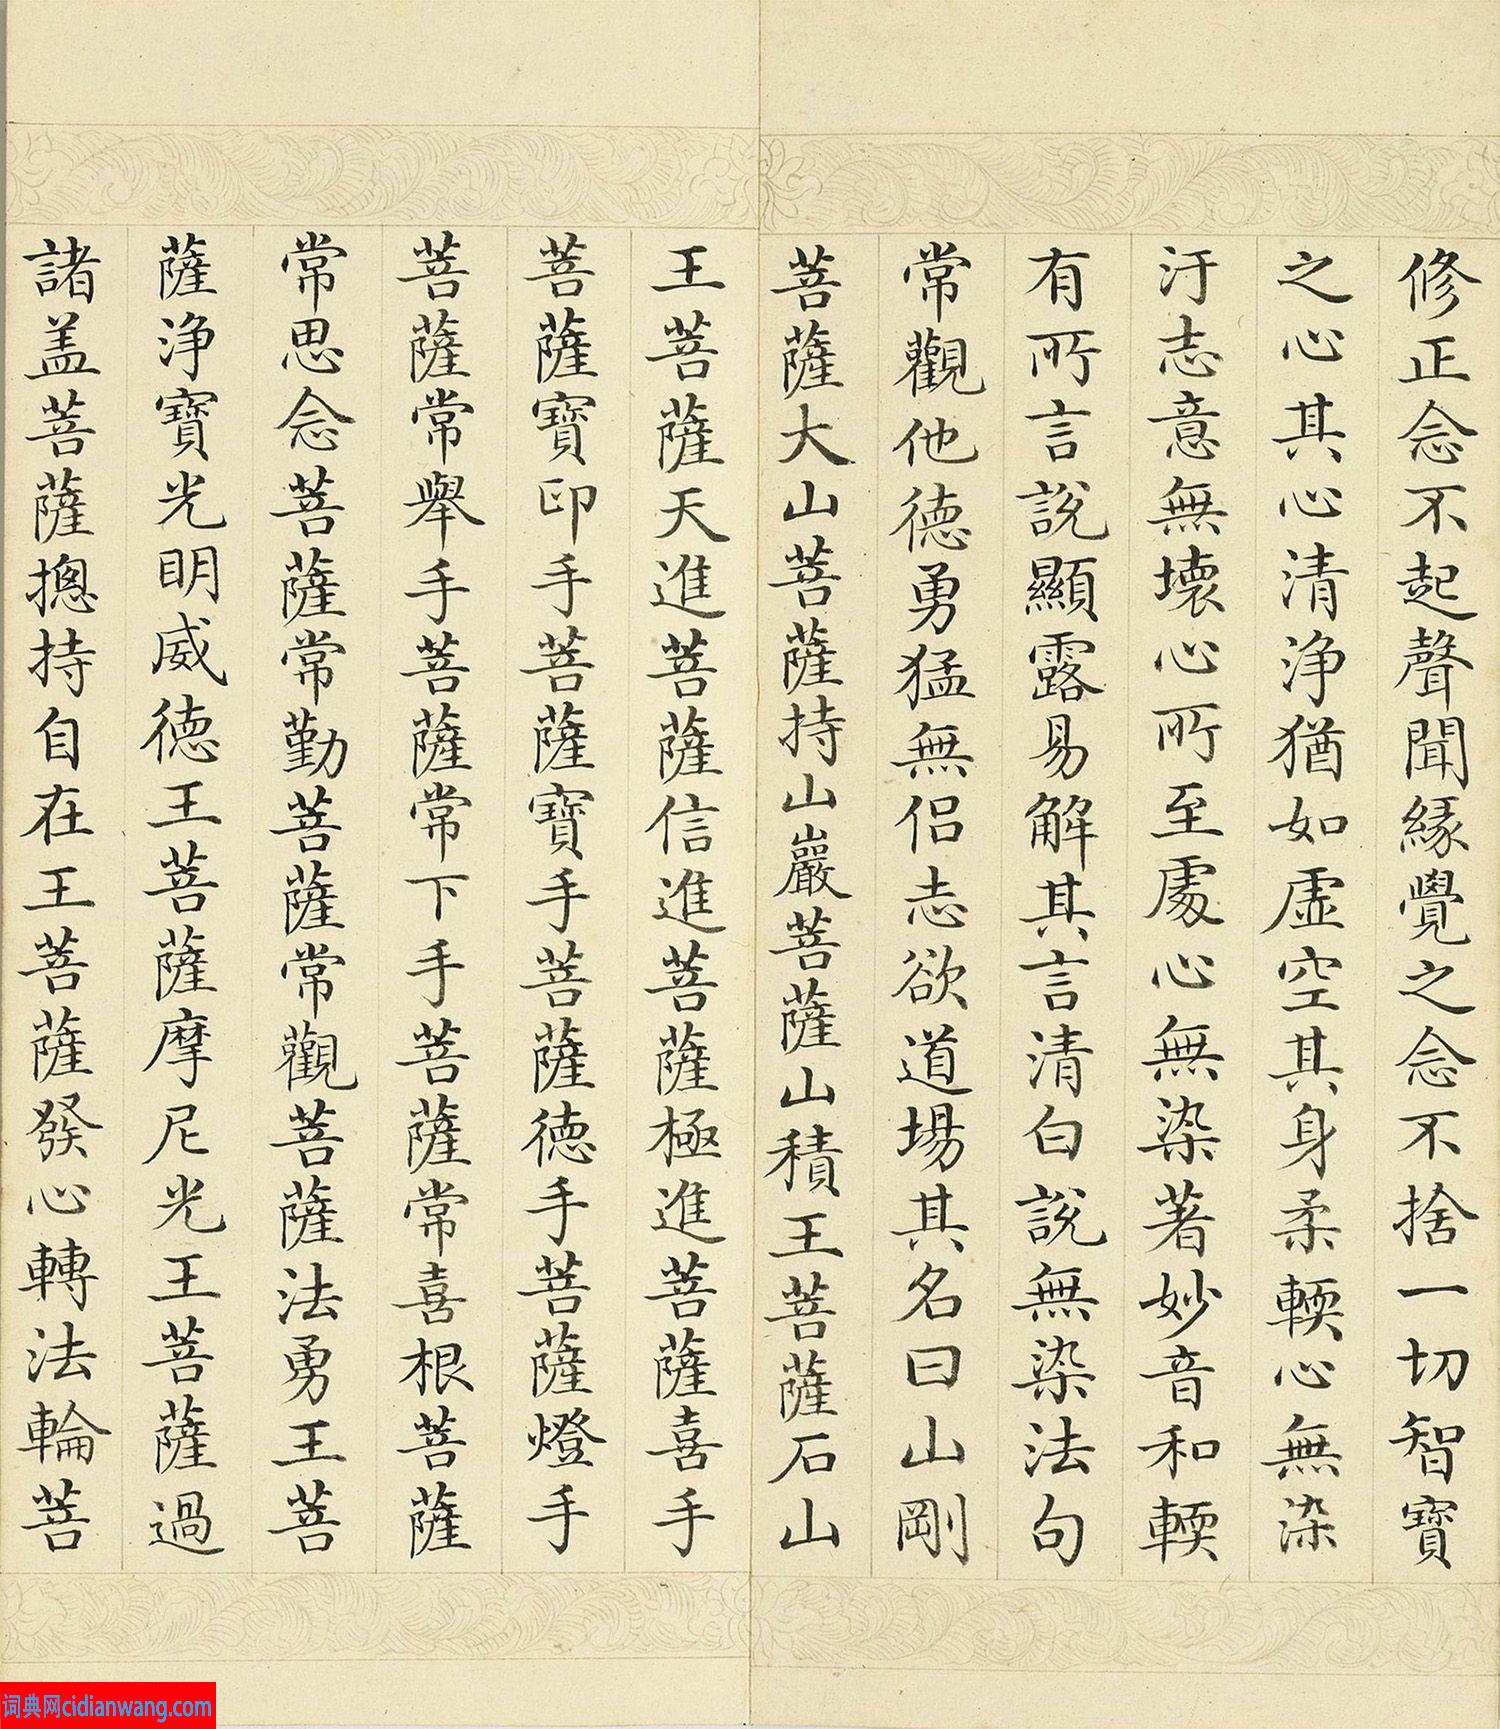 修正念不起聲聞縁覺之念不捨一切智寶
之心其心清淨猶如虛空其身柔輭心無染
汙志意無壞心所至處心無染著妙音和輭
有所言說顯露易解其言清白說無染法句
常觀他德勇猛無侶志欲道場其名曰山剛
菩薩大山菩薩持山巖菩薩山積王菩薩石山
王菩薩天進菩薩信進菩薩極進菩薩喜手
菩薩寶印手菩薩寶手菩薩德手菩薩燈手
菩薩常舉手菩薩常下手菩薩常喜根菩薩
常思念菩薩常勤菩薩常觀菩薩法勇王菩
薩淨寶光明威德王菩薩摩尼光王菩薩過
諸盖菩薩揔持自在王菩薩發心轉法輪菩
词典网cidianwang.com